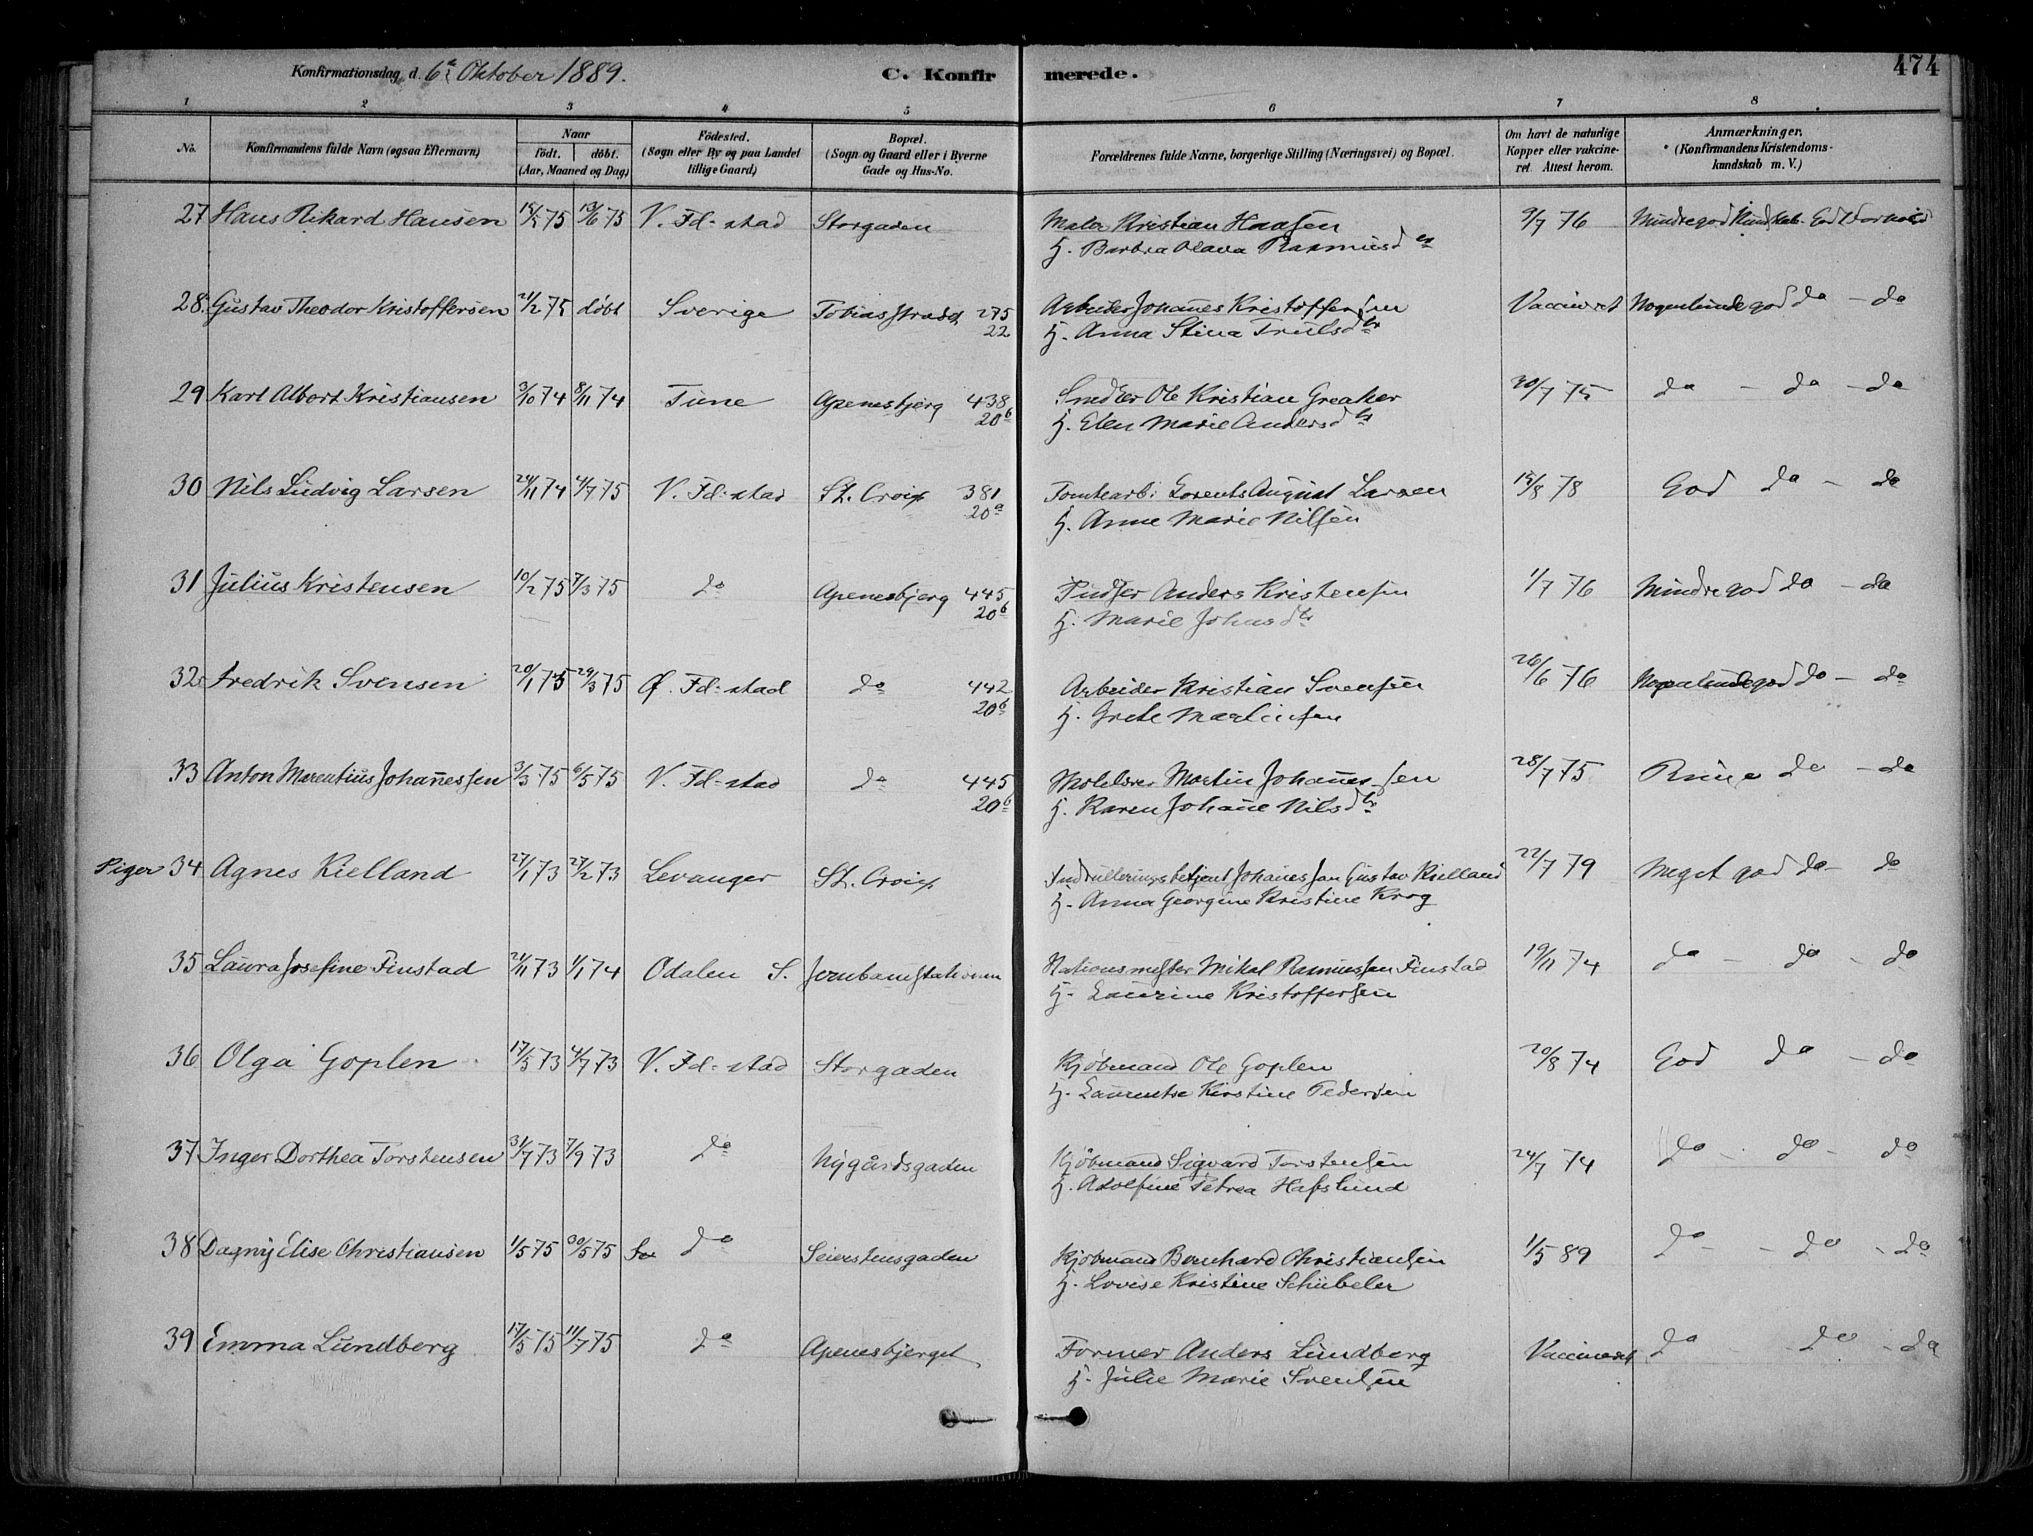 Konfirmationsdag d. 6te Oktober 1889.
C. Konfirmerede.
474
1 2 3 4 5 6 7 8
No.
Konfirmandens fulde Navn (ogsaa Efternavn)
Naar
født. døbt.
(Aar, Maaned og Dag)
Fødested.
(Sogn eller By og paa Landet
tillige Gaard)
Bopæl.
(Sogn og Gaard eller i Byerne
Gade og Hus-No.
Forældrenes fulde Navne, borgerlige Stilling (Næringsvei) og Bopæl.
Om havt de naturlige
Kopper eller vakcine-
ret. Attest herom.
Anmærkninger.
(Konfirmandens Kristendoms-
kundskab m. V.)
27 Hans Rikard Hansen 75 75 V. Fd:stad Storgaden Maler Kristian Hansen 9/7 76 Mindre god Kundskab. God Forhold
H. Barbra Olava Rasmusd
28 Gustav Theodor Kristoffersen 21/2 75 døbt Sverige Tobiasstrædet 275 Arbeider Johannes Kristoffersen Vaccineret Nogenlunde god do - do
22 H. Anna Stina Trulsdtr
29 Karl Albert Kristiansen 3/10 74 8/11 74 Tune Apenesbjerg 438 Ole Kristian Greaker 30/7 75 do - do - do
20b H. Elen Marie Andersdtr
30 Nils Ludvig Larsen 24/11 74 4/7 75 V. Fd:stad St. Croix 381 Tomtearb: Lorents August Larsen 15/8 78 God do - do
20a H. Anne Marie Nilsen
31 Julius Kristensen 10/2 75 7/3 75 do Apenesbjerg 445 Anders Kristensen 1/7 76 Mindre god do - do
20b H. Marie Johnsdtr
32 Fredrik Svensen 20/1 75 29/3 75 Ø. Fd:stad do 442 Arbeider Kristian Svensen 26/6 76 Nogenlunde god do - do
20b H. Grete Martinsen
33 Anton Marentius Johannessen 3/3 75 6/5 75 V. Fd:stad do 445 Martin Johannessen 28/7 75 do - do
20b H. Karen Johane Nilsdtr
Piger 34 Agnes Kielland 27/1 73 27/2 73 Levanger St. Croix Indrulleringsbetjent Johannes Jan Gustav Kielland 22/7 79 Meget god do - do
H. Anna Georgine Kristine Krog
35 Laura Josefine Finstad 21/11 73 1/1 74 Odalen S. Jernbanestationen Stationsmester Mikal Rasmussen Finstad 19/11 74 do - do - do
H. Laurine Kristoffersen
36 Olga Goplen 17/3 73 4/7 73 V. Fd:stad Storgaden Kjøbmand Ole Goplen 20/8 74 God do - do
H. Laurentse Kirstine Pedersen
37 Inger Dorthea Torstensen 31/7 73 7/9 73 do Nygårdsgaden Kjøbmand Sigvard Torstensen 24/7 74 do - do - do
H. Adolfine Petrea Hafslund
38 Dagny Elise Christiansen 1/5 75 30/5 75 do Seierstensgaden Kjøbmand Bernhard Christiansen 1/5 89 do - do - do
H. Lovise Kristine Schübeler
39 Emma Lundberg 17/5 75 11/7 75 do Apenesbjerget Former Anders Lundberg Vaccineret do do - do
H. Julie Marie Svensen